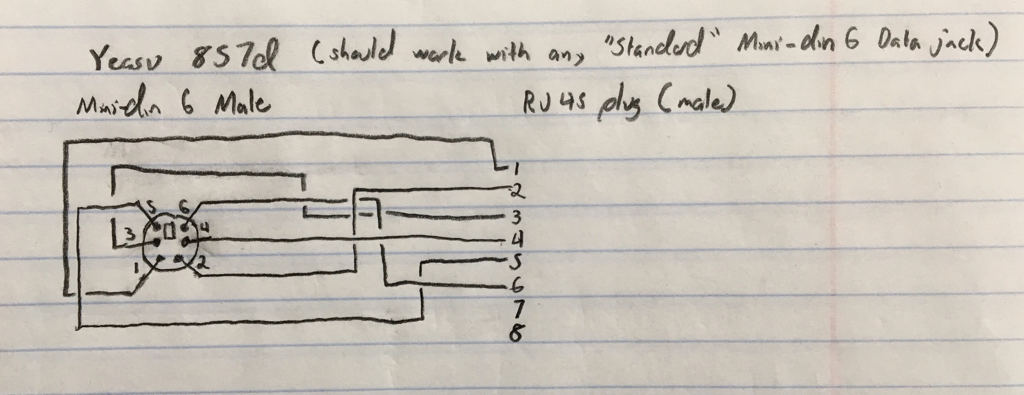 Yeasu 857d (should work with any "Standard" Mini-din 6 Data jack)
Mini-din 6 Male RJ45 plug (male)
1
5 6 2
3 4 3
4
1 2 5
6
7
8